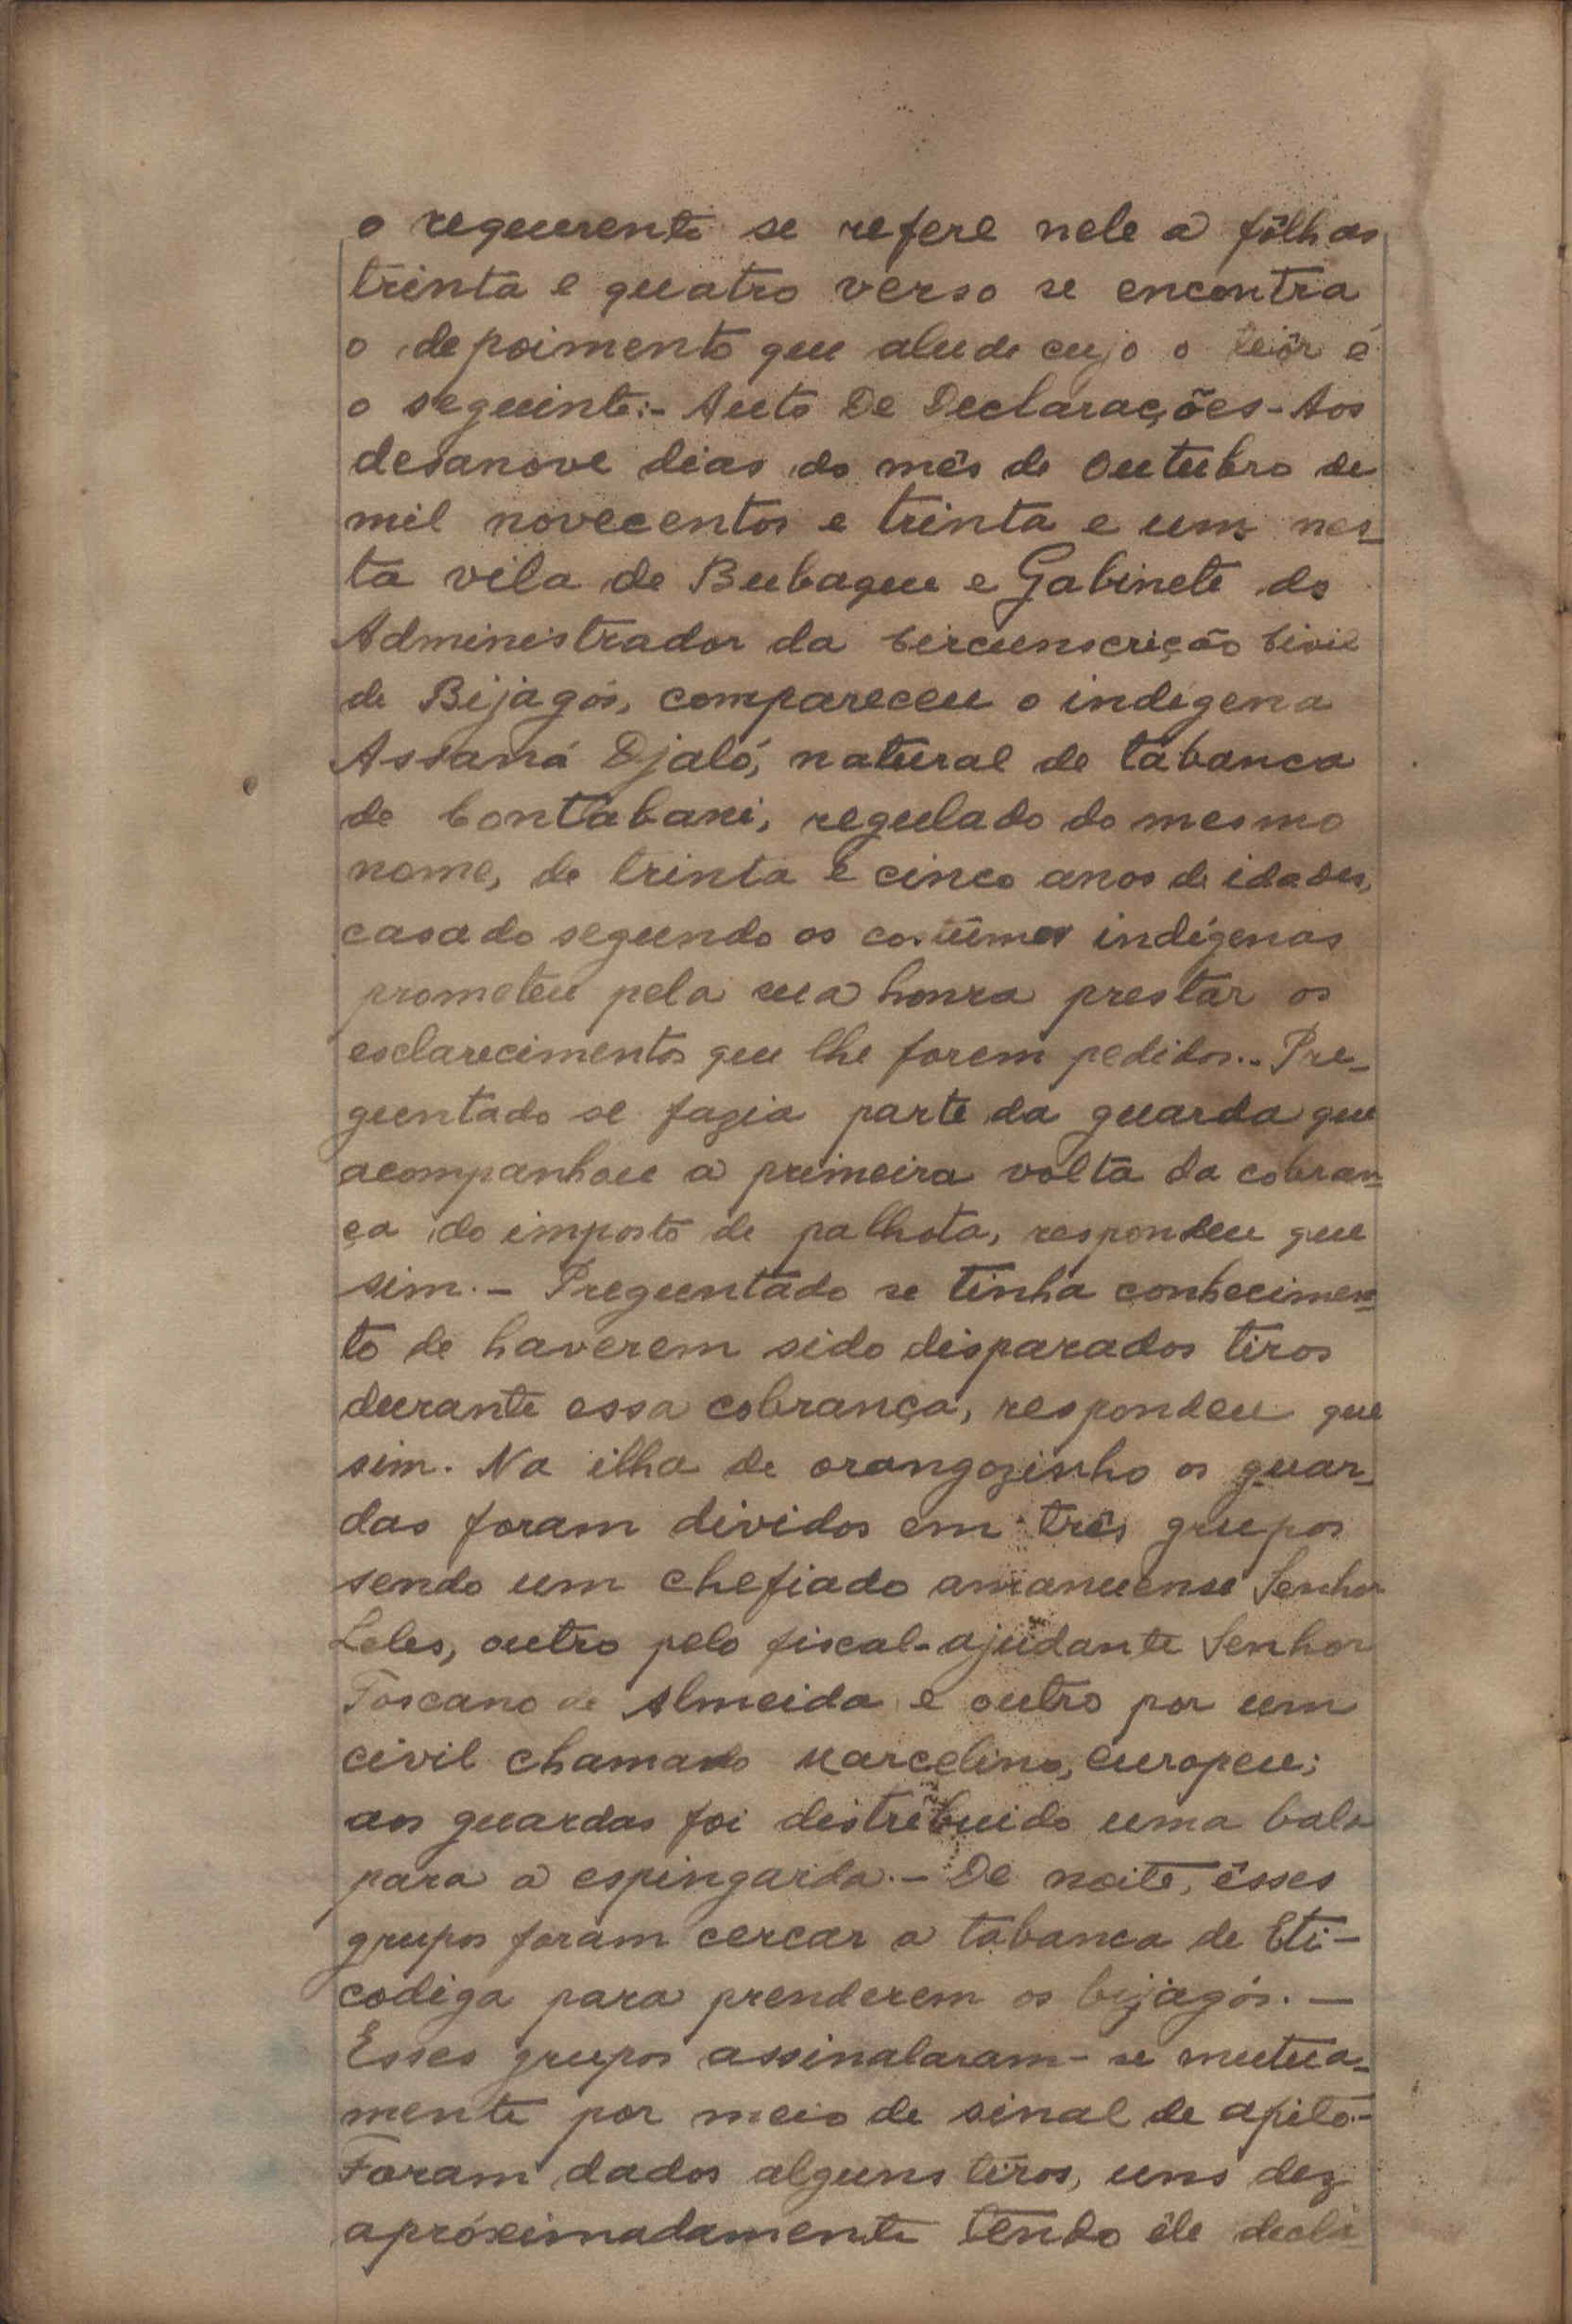 o requerente se refere nele a fôlhas
trinta e quatro verso se encontra
o depoimento que alude cujo o teôr é
o seguinte:- Auto De Declarações - Aos
desanove dias do mês de Outubro de
mil novecentos e trinta e um nes-
ta vila de Bubaque e Gabinete do
Administrador da Circunscrição Civil
de Bijagós, compareceu o indígena
Assaná Djaló, natural de tabanca
de Contabani, regulado do mesmo
nome, de trinta e cinco anos de idades,
casado segundo os costumes indígenas
prometeu pela sua honra prestar os
esclarecimentos que lhe forem pedidos.- Pre-
guntado se fazia parte da guarda que
acompanhou a primeira volta da cobran-
ça do imposto de palhota, respondeu que
sim.- Preguntado se tinha conhecimen-
to de haverem sido disparados tiros
durante essa cobrança, respondeu que
sim. Na ilha de orangozinho os guar-
das foram dividos em três grupos
sendo um chefiado amanuense Senhor
Leles, outro pelo fiscal-ajudante Senhor
Toscano de Almeida e outro por um
civil chamado Marcelino, europeu;
aos guardas foi distribuido uma bala
para a espingarda.- De noite, êsses
grupos foram cercar a tabanca de Eti-
codiga para prenderem os bijagós.-
Esses grupos assinalaram-se mutua-
mente por meio de sinal de apito.-
Foram dados alguns tiros, uns dez
apróximadamente tendo êle decla